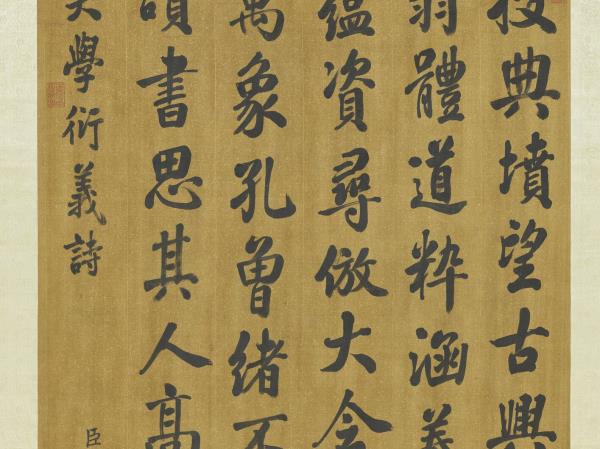 典墳望古興
體道粹涵
資尋倣大
萬象孔曾緒不
讀書思其人高
大學衍義詩
臣